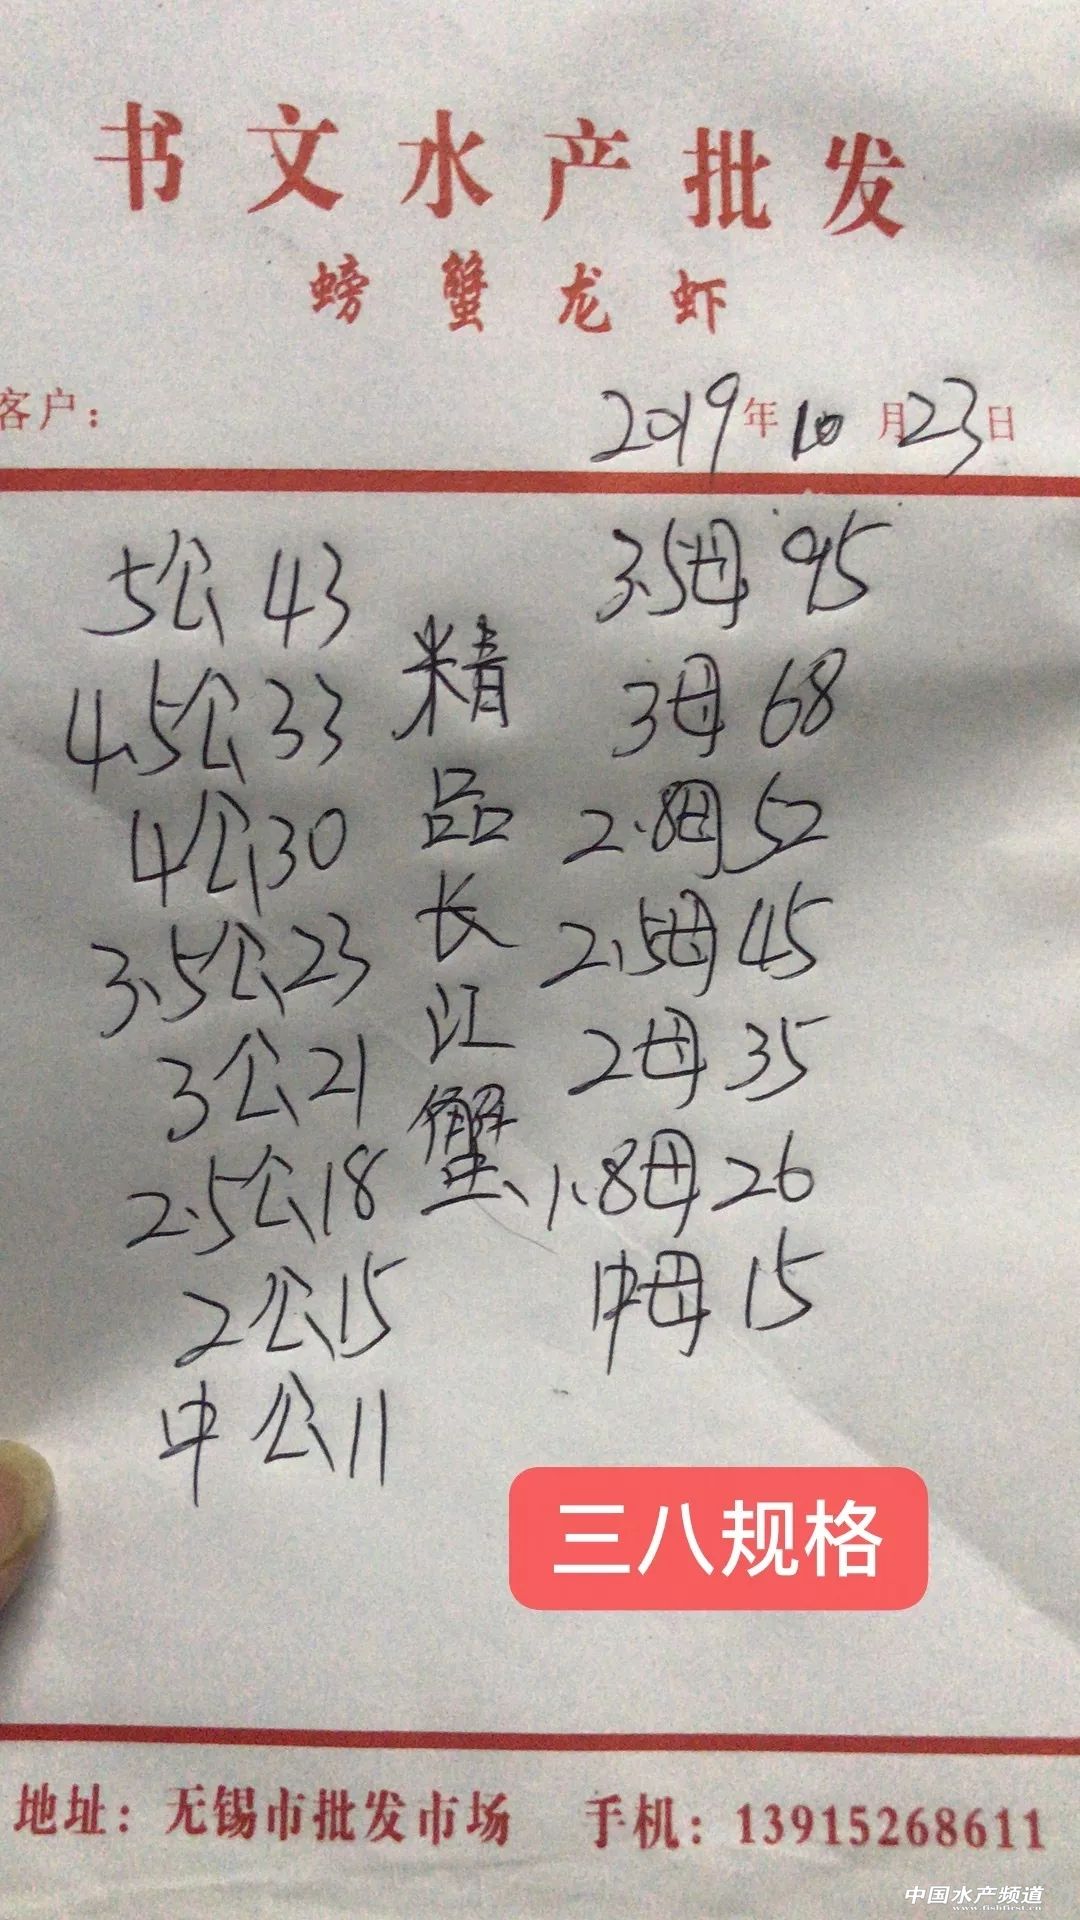 书文水产批发
螃蟹龙虾
客户：
2019年10月23日
5公 43
4.5公 33
4公 30
3.5公 23
3公 21
2.5公 18
2公 15
中公 11
精品长江蟹
3.5母 95
3母 68
2.8母 52
2.5母 45
2母 35
1.8母 26
中母 15
三八规格
地址：无锡市批发市场 手机：13915268611
中国水产频道
www.fishfirst.cn